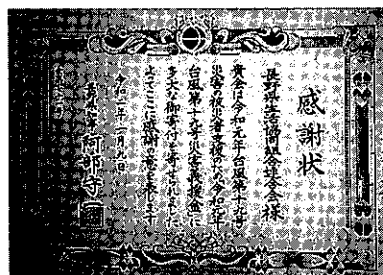 感謝状
長野県生活協同組合連合会様
貴会は令和元年台風第十九号
災害の被災者支援のため令和元年
台風第十九号災害義援金に
多大の御寄付を寄せられました
よってここに感謝の意を表します
長野県知事 阿部守一